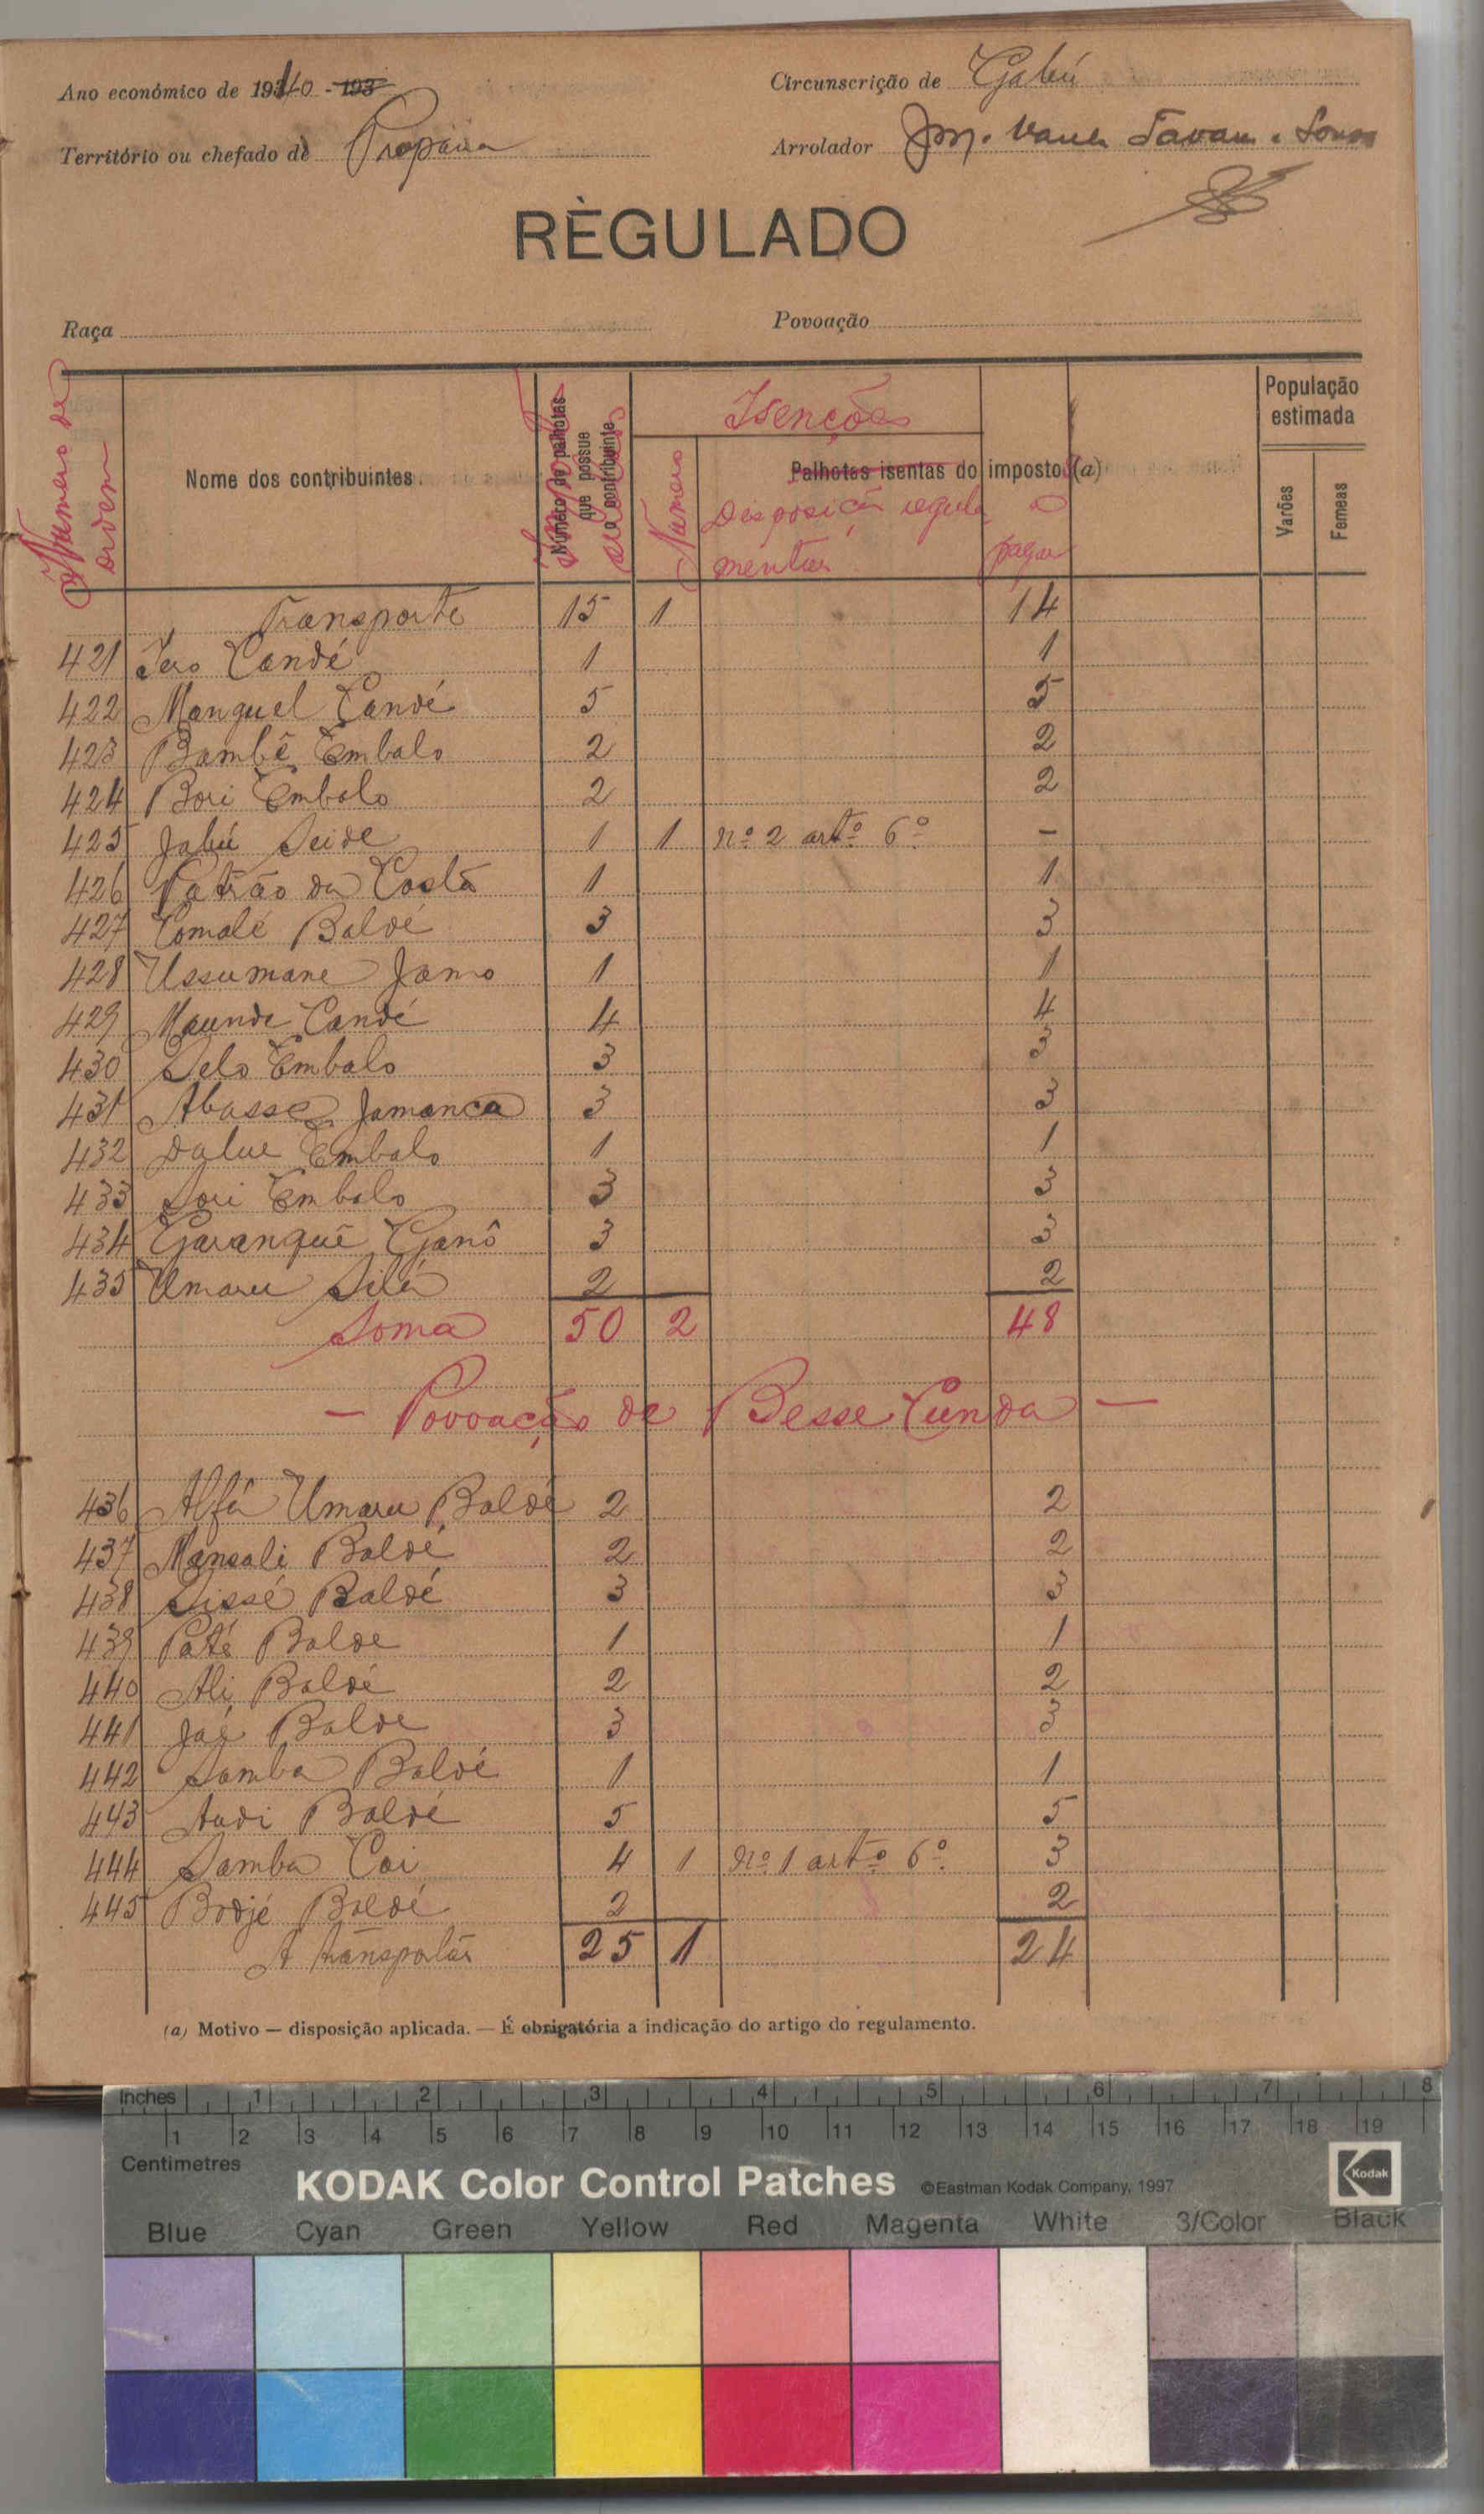 Ano económico de 1940 - 193
Circunscrição de Gabú
Território ou chefado de Propana
Arrolador
RÈGULADO
Raça
Povoação
Numero de ordem
Nome dos contribuintes
Número de palhotas que possue o contribuinte
Isenções
Numero
Palhotas isentas do imposto (a)
Disposição regulamentar
a pagar
População estimada
Varões
Femeas
Transporte 15 1 14
421 Jero Candé 1 1
422 Manguel Candé 5 5
423 Bambê Embalo 2 2
424 Bori Embalo 2 2
425 Jabú Seide 1 1 nº 2 artº 6º -
426 Patrão da Costa 1 1
427 Comalé Baldé 3 3
428 Ussumane Jamo 1 1
429 Maunde Candé 4 4
430 Selo Embalo 3 3
431 Abasse Jamanca 3 3
432 Dalue Embalo 1 1
433 Sori Embalo 3 3
434 Garanguê Ganô 3 3
435 Umaru Silá 2 2
Soma 50 2 48
- Povoação de Besse Cunda -
436 Alfá Umaru Baldé 2 2
437 Mansali Baldé 2 2
438 Sissé Baldé 3 3
439 Paté Balde 1 1
440 Ali Baldé 2 2
441 Jaé Balde 3 3
442 Samba Baldé 1 1
443 Audi Baldé 5 5
444 Samba Coi 4 1 nº 1 artº 6º 3
445 Bodjé Baldé 2 2
A transportar 25 1 24
(a) Motivo — disposição aplicada. — É obrigatória a indicação do artigo do regulamento.
Inches 1 2 3 4 5 6 7 8
1 2 3 4 5 6 7 8 9 10 11 12 13 14 15 16 17 18 19
Centimetres
KODAK Color Control Patches ©Eastman Kodak Company, 1997 Kodak
Blue Cyan Green Yellow Red Magenta White 3/Color Black